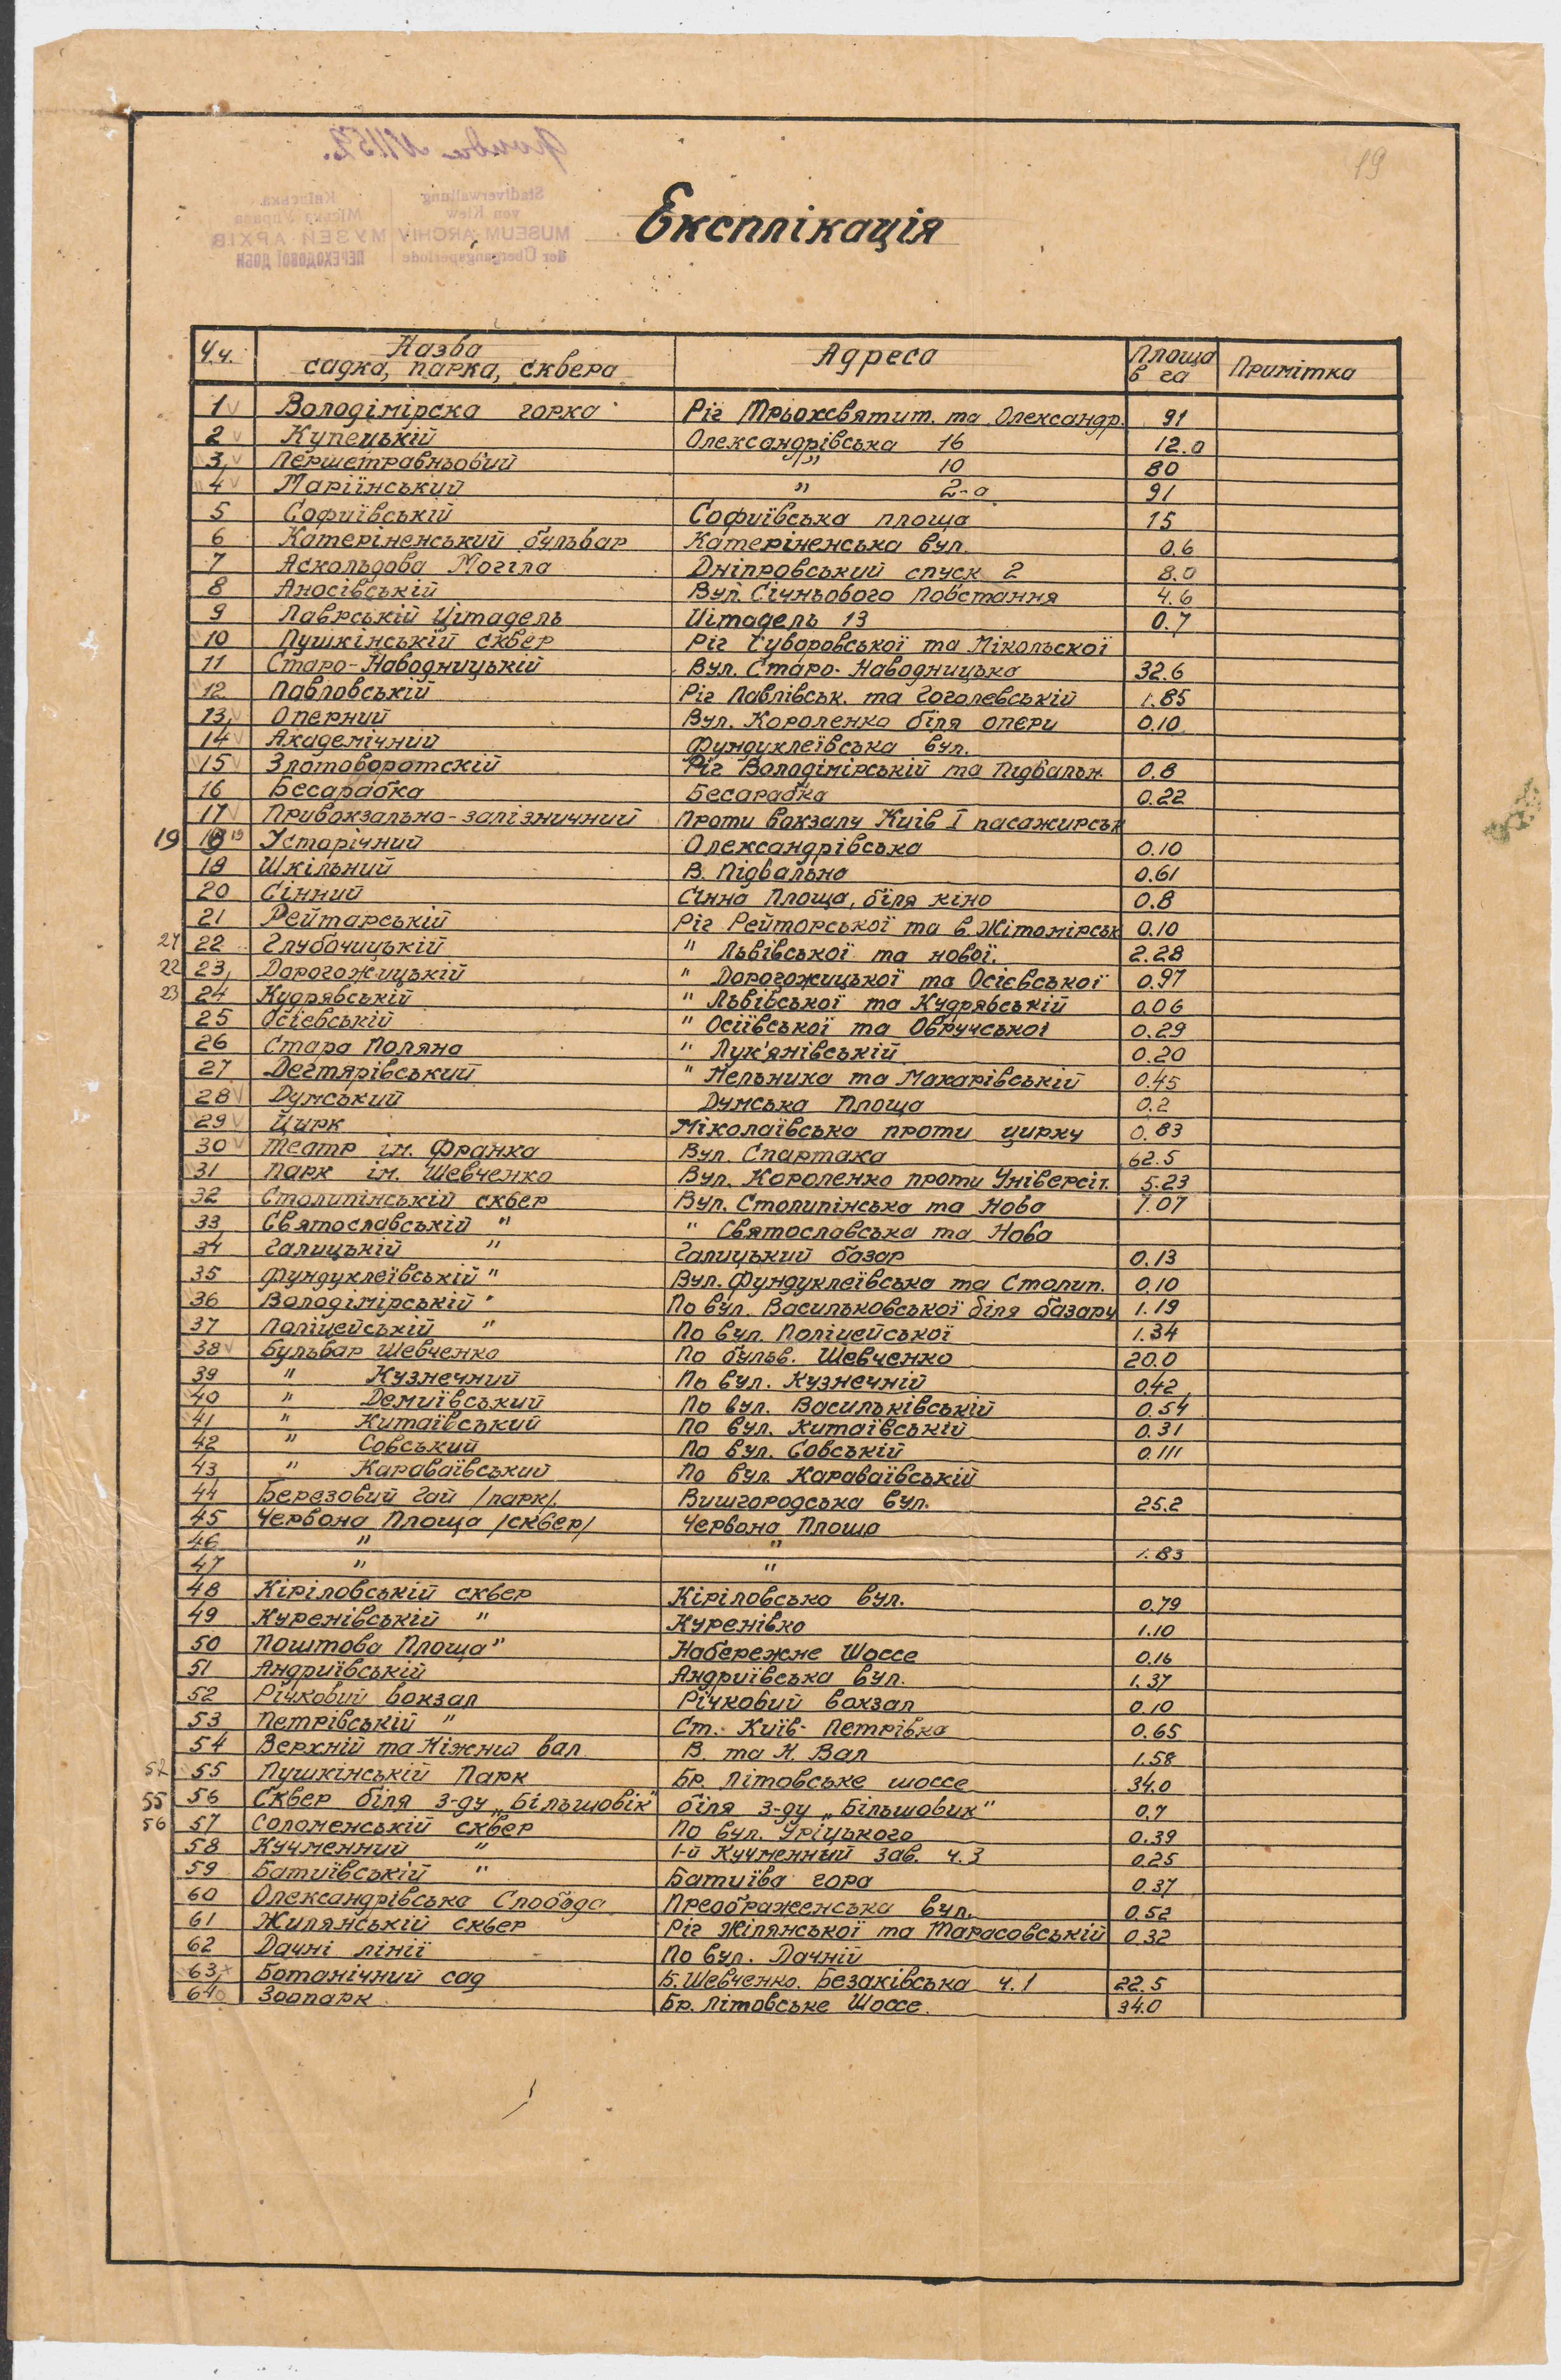 19
Stadtverwaltung von Kiew
MUSEUM-ARCHIV
der Übergangsperiode
Київська Міська Управа
МУЗЕЙ АРХІВ
ПЕРЕХОДОВОЇ ДОБИ
Експлікація
Ч.ч. Назва садка, парка, сквера Адреса Площа в га Примітка
1 Володімірска горка Ріг Трьохсвятит. та Олександр. 91
2 Купецькій Олександрівська 16 12.0
3 Першетравньовий " 10 80
4 Маріїнський " 2-а 91
5 Софиївській Софиївська площа 15
6 Катеріненський бульвар Катеріненська вул. 0.6
7 Аскольдова Могіла Дніпровський спуск 2 8.0
8 Аносівській Вул. Січньового Повстання 4.6
9 Лаврській Цітадель Цітадель 13 0.7
10 Пушкінській сквер Ріг Суворовської та Нікольскої
11 Старо-Наводницькій Вул. Старо-Наводницька 32.6
12 Павловській Ріг Павлівськ. та Гоголевській 1.85
13 Оперний Вул. Короленко біля опери 0.10
14 Академічний Фундуклеївська вул.
15 Златоворотскій Ріг Володімірській та Підвальн. 0.8
16 Бесарабка Бесарабка 0.22
17 Привокзально-залізничний Проти вокзалу Київ I пасажирськ
19 18 19 Усторічний Олександрівська 0.10
19 Шкільний В. Підвальна 0.61
20 Сінний Сінна Площа, біля кіно 0.8
21 Рейтарській Ріг Рейторської та в. Жітомірськ 0.10
21 22 Глубочицькій " Львівської та нової. 2.28
22 23 Дорогожицькій " Дорогожицької та Осієвської 0.97
23 24 Кудрявській " Львівської та Кудрявській 0.06
25 Осієвській " Осіївської та Овручської 0.29
26 Стара Поляна " Лук'янівській 0.20
27 Дегтярівський " Мельника та Макарівській 0.45
28 Думський Думська Площа 0.2
29 Цирк Міколаївська проти цирку 0.83
30 Театр ім. Франка Вул. Спартака 62.5
31 Парк ім. Шевченко Вул. Короленко проти Універсіт. 5.23
32 Столипінській сквер Вул. Столипінська та Нова 1.07
33 Святославській " " Святославська та Нова
34 Галицькій " Галицький базар 0.13
35 Фундуклеївській " Вул. Фундуклеївська та Столип. 0.10
36 Володімірській " По вул. Васильковської біля базару 1.19
37 Поліцейській " По вул. Поліцейської 1.34
38 Бульвар Шевченко По бульв. Шевченко 20.0
39 " Кузнечний По вул. Кузнечній 0.42
40 " Демиївський По вул. Васильківській 0.54
41 " Китаївський По вул. Китаївській 0.31
42 " Совський По вул. Совській 0.111
43 " Караваївський По вул. Караваївській
44 Березовий Гай /парк/. Вишгородська вул. 25.2
45 Червона Площа /сквер/ Червона Площа
46 " " 1.83
47 " "
48 Кіріловській сквер Кіріловська вул. 0.79
49 Куренівській " Куренівка 1.10
50 Поштова Площа " Набережне Шоссе 0.16
51 Андриївській Андриївська вул. 1.37
52 Річковий вокзал Річковий вокзал 0.10
53 Петрівській " Ст. Київ-Петрівка 0.65
54 Верхній та Ніжній вал В. та Н. Вал 1.58
55 Пушкінській Парк Бр. Літовське шоссе 34.0
55 56 Сквер біля з-ду „Більшовік" біля з-ду „Більшовик" 0.7
56 57 Соломенській сквер По вул. Уріцького 0.39
58 Кучменний " 1-й Кучменный зав. ч.3 0.25
59 Батиївській " Батиїва гора 0.37
60 Олександрівська Слобода Преображенська вул. 0.52
61 Жилянській сквер Ріг Жілянської та Тарасовській 0.32
62 Дачні лінії По вул. Дачній
63 Ботанічний сад Б. Шевченко. Безаківська ч.1 22.5
64 Зоопарк Бр. Літовське Шоссе. 34.0